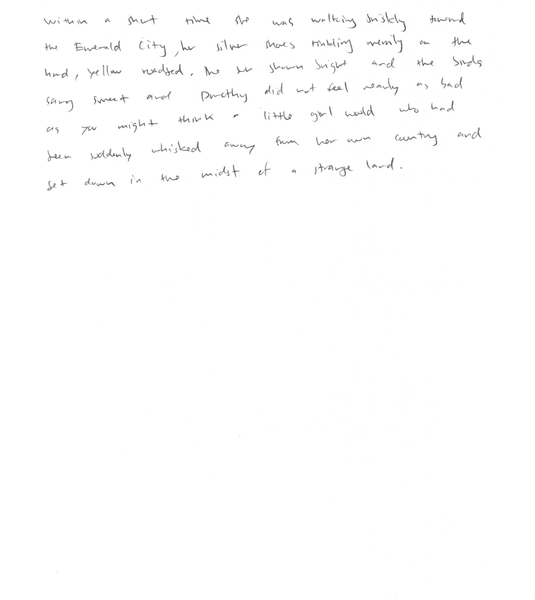 Within a short time she was walking briskly toward
the Emerald City, her silver shoes tinkling merrily on the
hard, yellow roadbed. The sun shown bright and the birds
sang sweet and Dorothy did not feel nearly as bad
as you might think a little girl would who had
been suddenly whisked away from her own country and
set down in the midst of a strange land.